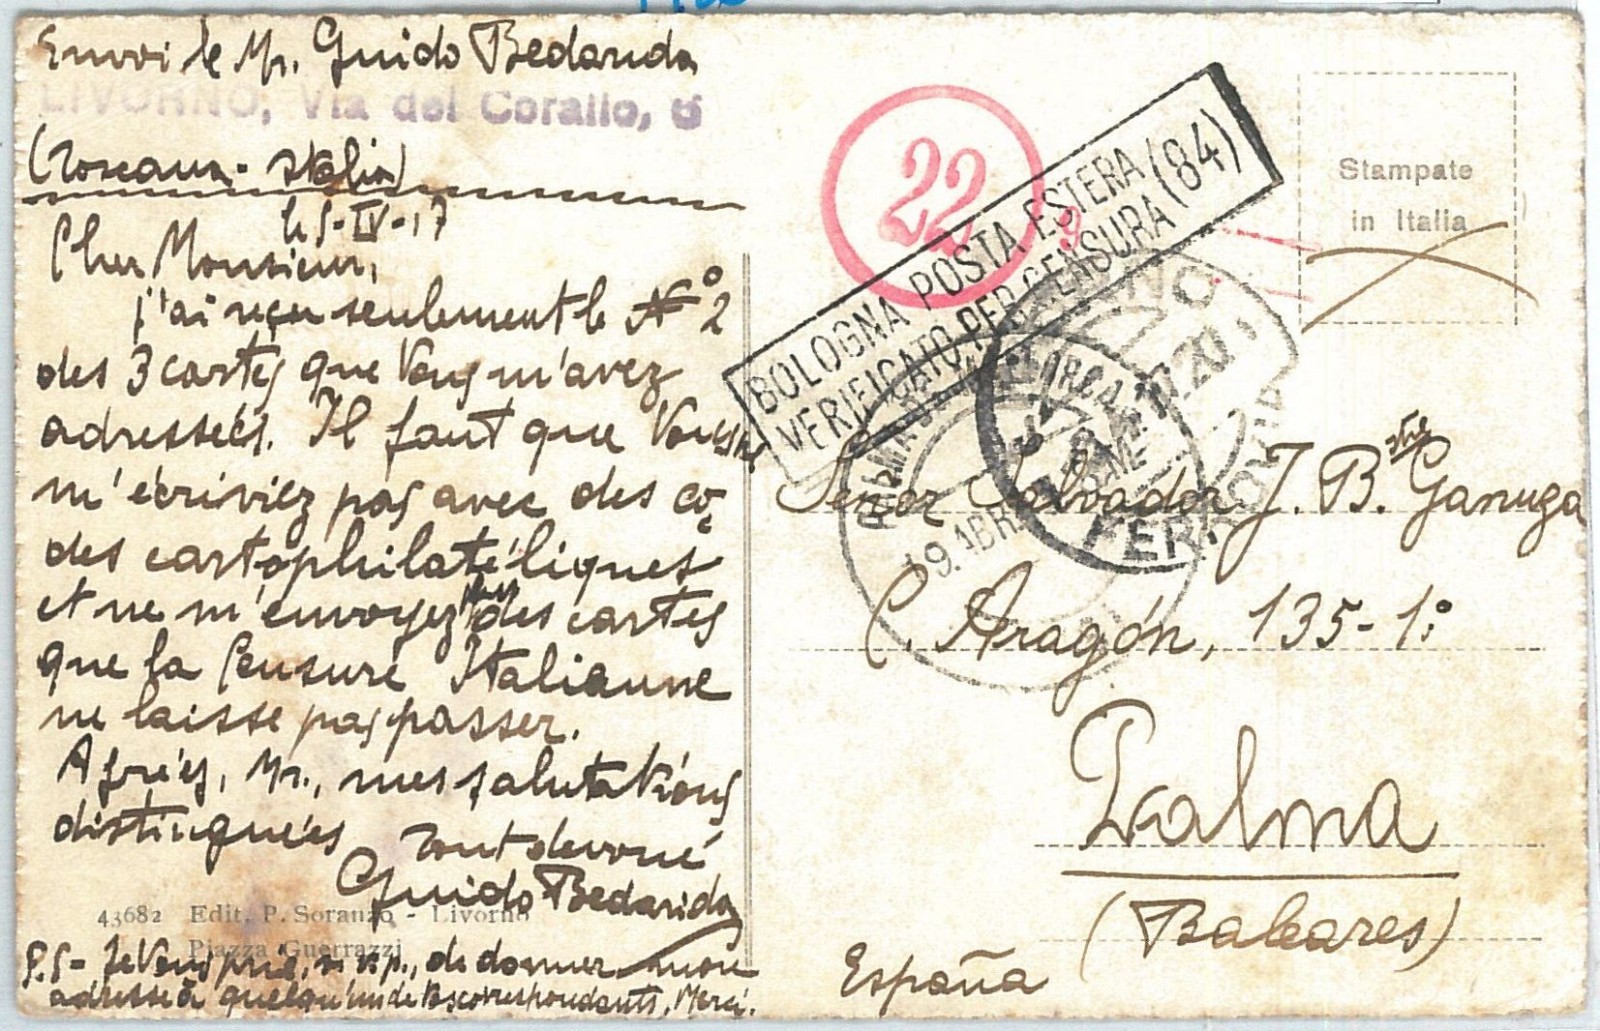 Envoi de Mr. Guido Bedarida
LIVORNO, Via del Corallo, 6
(Toscana - Italia)
le 5-IV-17
Cher Monsieur,
j'ai reçu seulement le N° 2
des 3 cartes que Vous m'avez
adressées. Il faut que Vous ne
m'écriviez pas avec des co-
des cartophilatéliques
et ne m'envoyez pas des cartes
que la Censure Italianne
ne laisse pas passer.
Après, Mr., mes salutations
distinguées Tout devoué
Guido Bedarida
43682 Edit. P. Soranzo - Livorno
Piazza Guerrazzi
P.S- Je Vous prie, s. v. p., de donner mon
adresse à quelqu'un de Vos correspondants, Merci.
22
9
BOLOGNA POSTA ESTERA
VERIFICATO PER CENSURA (84)
Stampate
in Italia
FERROVIA
19.ABR
Señor Salvador J. Bta. Ganuga
C. Aragón, 135-1º
Palma
(Baleares)
España